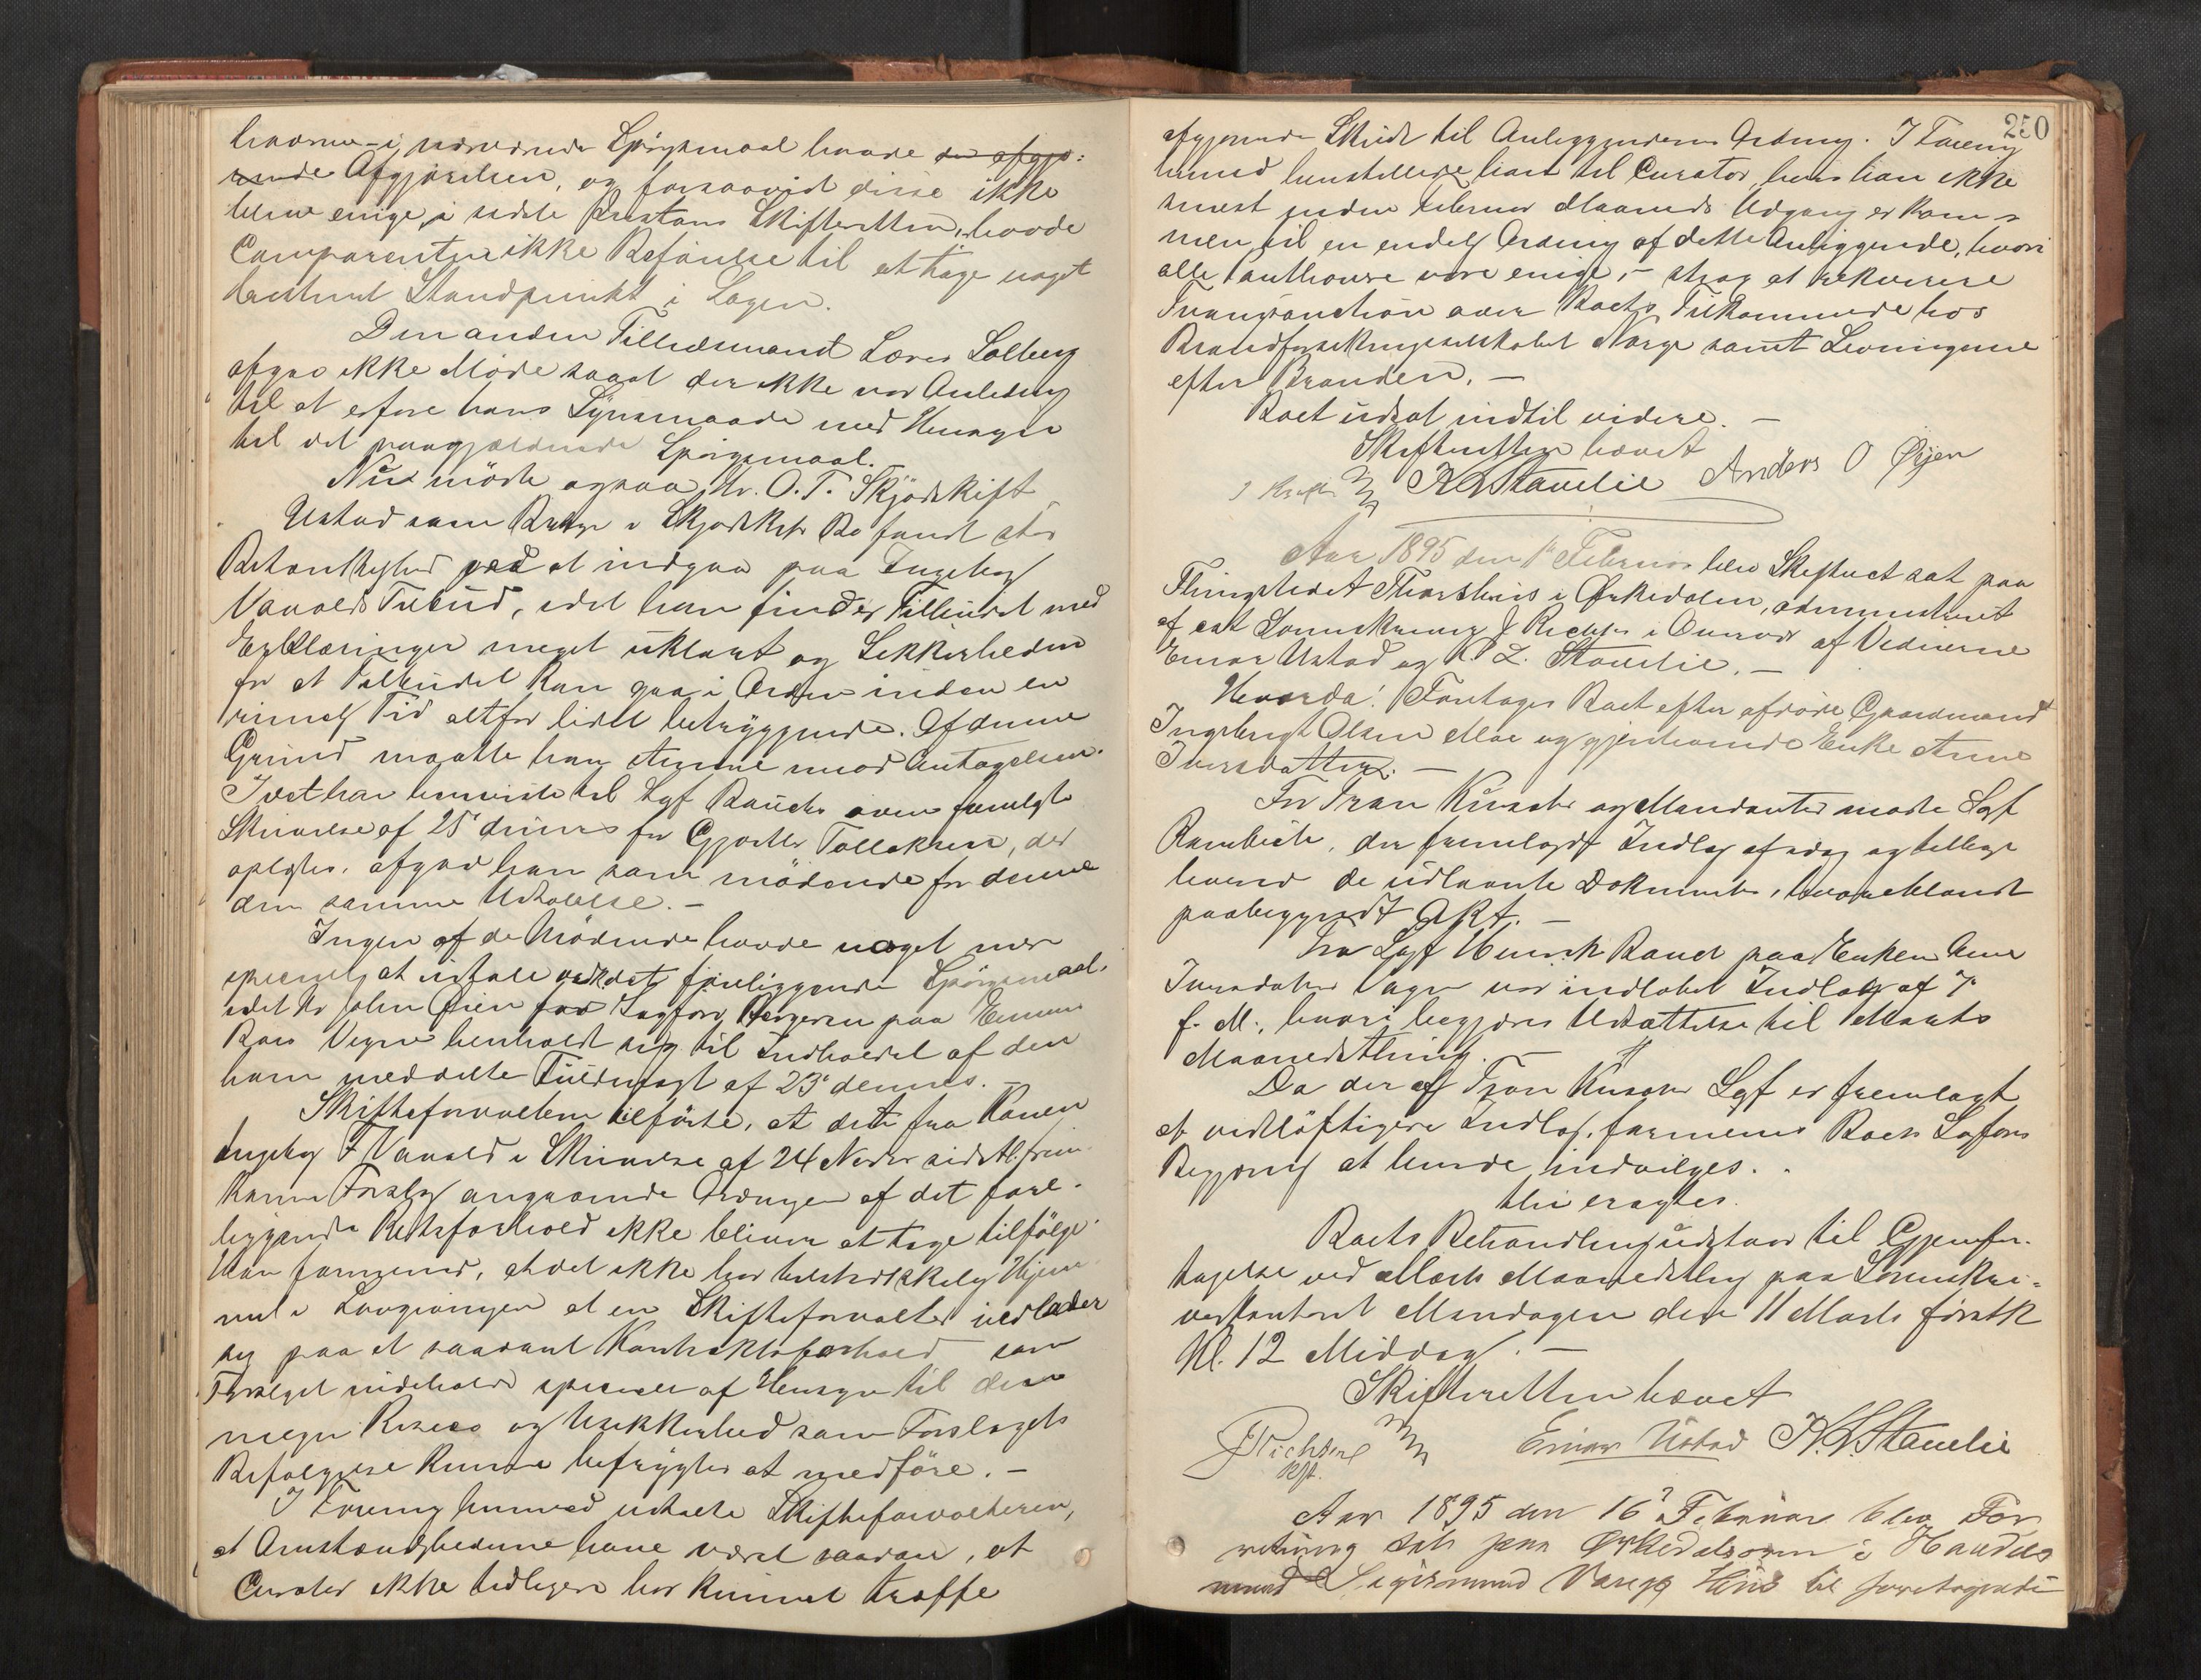 havne i nærværende Spörgsmaal havde den afgjö-
rende Afgjörelsen, og forsaavidt disse ikke
bleve enige, i sidste Instans Skifteretten, havde
Comparenten ikke Beföielse til at tage noget
bestemt Standpunkt i Sagen.
Den anden Tillidsmand Lars Solberg
afgav ikke Möde saaat der ikke var Anledning
til at erfare hans Synsmaade med Hensyn
til det paagjældende Spörgsmaal.
Nu mödte ogsaa Hr. O. T. Skjödskift
Ustad som i Skjödskift Bo fandt stor
Betænkelighed ved at indgaa paa Ingeborg
Vavolds Tilbud, idet han finder Tilbudet med
Erklæringer meget uklart og Sikkerheden
for at Tilbudet kan gaa i Orden inden en
rimelig Tid altfor lidet betryggende. Af denne
Grund maatte han stemme mod Antagelsen.
Idet han henviste til Sgf Bauchs fremlagte
Skrivelse af 25 dennes for Gjortler Tollefsen, der
oplæstes, afgav han som mödende for denne
den samme Udtalelse. -
Ingen af de Mödende havde noget mere
specielt at udtale ved det foreliggende Spörgsmaal,
idet Hr John Öien for Sagförer paa
Boes Vegne henholdt sig til Indholdet af den
ham meddelte Fuldmagt af 23 dennes. -
Skifteforvalteren tilförte, at det fra Konen
Ingeborg F Vavold i Skrivelse af 24 Novbr sidstl. frem-
komne Forslag angaaende Ordningen af det fore-
liggende Retsforhold ikke bliver at tage tilfölge.
Man formener, at det ikke har tilstrækkelig Hjem-
mel i Lovgivningen at en Skifteforvalter indlader
sig paa et saadant Kontraktsforhold som
Forslaget indeholder specielt af Hensyn til den
megen Risico og Usikkerhed som Forslagets
Befölgelse kunde befrygtes at medföre. -
I Forening hermed udtalte Skifteforvalteren,
at Omstændighederne have været saadan, at
Curator ikke tidligere har kunnet træffe
250
afgjörende Skridt til Anliggendets Ordning. I Forening
hermed henstilledes hart til Curator, hvis han ikke
senest inden Februar Maaneds Udgang er kom-
men til en endelig Ordning af dette Anliggende, hvori
alle Panthavere vare enige, - strax at rekvirere
Tvangsauction over Boets Tilkommende hos
Brandforsikringsselskabet Norge samt Levningene
efter Branden. -
Boet udsat indtil videre. -
Skifteretten hævet
K L Stavelie Anders O Öyen
Aar 1895 den 1 Februar blev Skifteret sat paa
Thingstedet Thorshus i Örkedalen, administreret
af cst Sorenskriver J Richter i Overvær af Vidnerne
Einar Ustad og K. L. Stavelie. -
Hvorda! Foretoges Boet efter afdöde Gaardmand
Ingebrigt Olsen Moe og gjenlevende Enke Anne
Iversdatter. -
For Iver og Mandanter mödte Sgf
der fremlagde Indlæg af idag og tillige
leverede de udlaante Dokumenter, hvoriblandt
paabegyndt Akt. -
Fra Sgf Henrik Bauch paa Enken Anne
Iversdatters Vegne var indlöbet Indlæg af 7
f. M., hvori begjæres Udsættelse til Marts
Maanedsthing. -
Da der af Sgf er fremlagt
et vidlöftigere Indlæg, formenes Boets Sagförers
Begjæring at burde indvilges.
thi eragtes.
Boets Behandling udstaar til Gjenfor-
tagelse ved Marts Maanedsthing paa Sorenskri-
verkontoret Mandagen den 11 Marts förstk
Kl. 12 Middag. -
Skifteretten hævet
J Richter Kst. Einar Ustad K. L. Stavelie
Aar 1895 den 16 Februar blev For
retning sat paa Örkedalsören i Handels
mand Sigismund Huus til foretagende